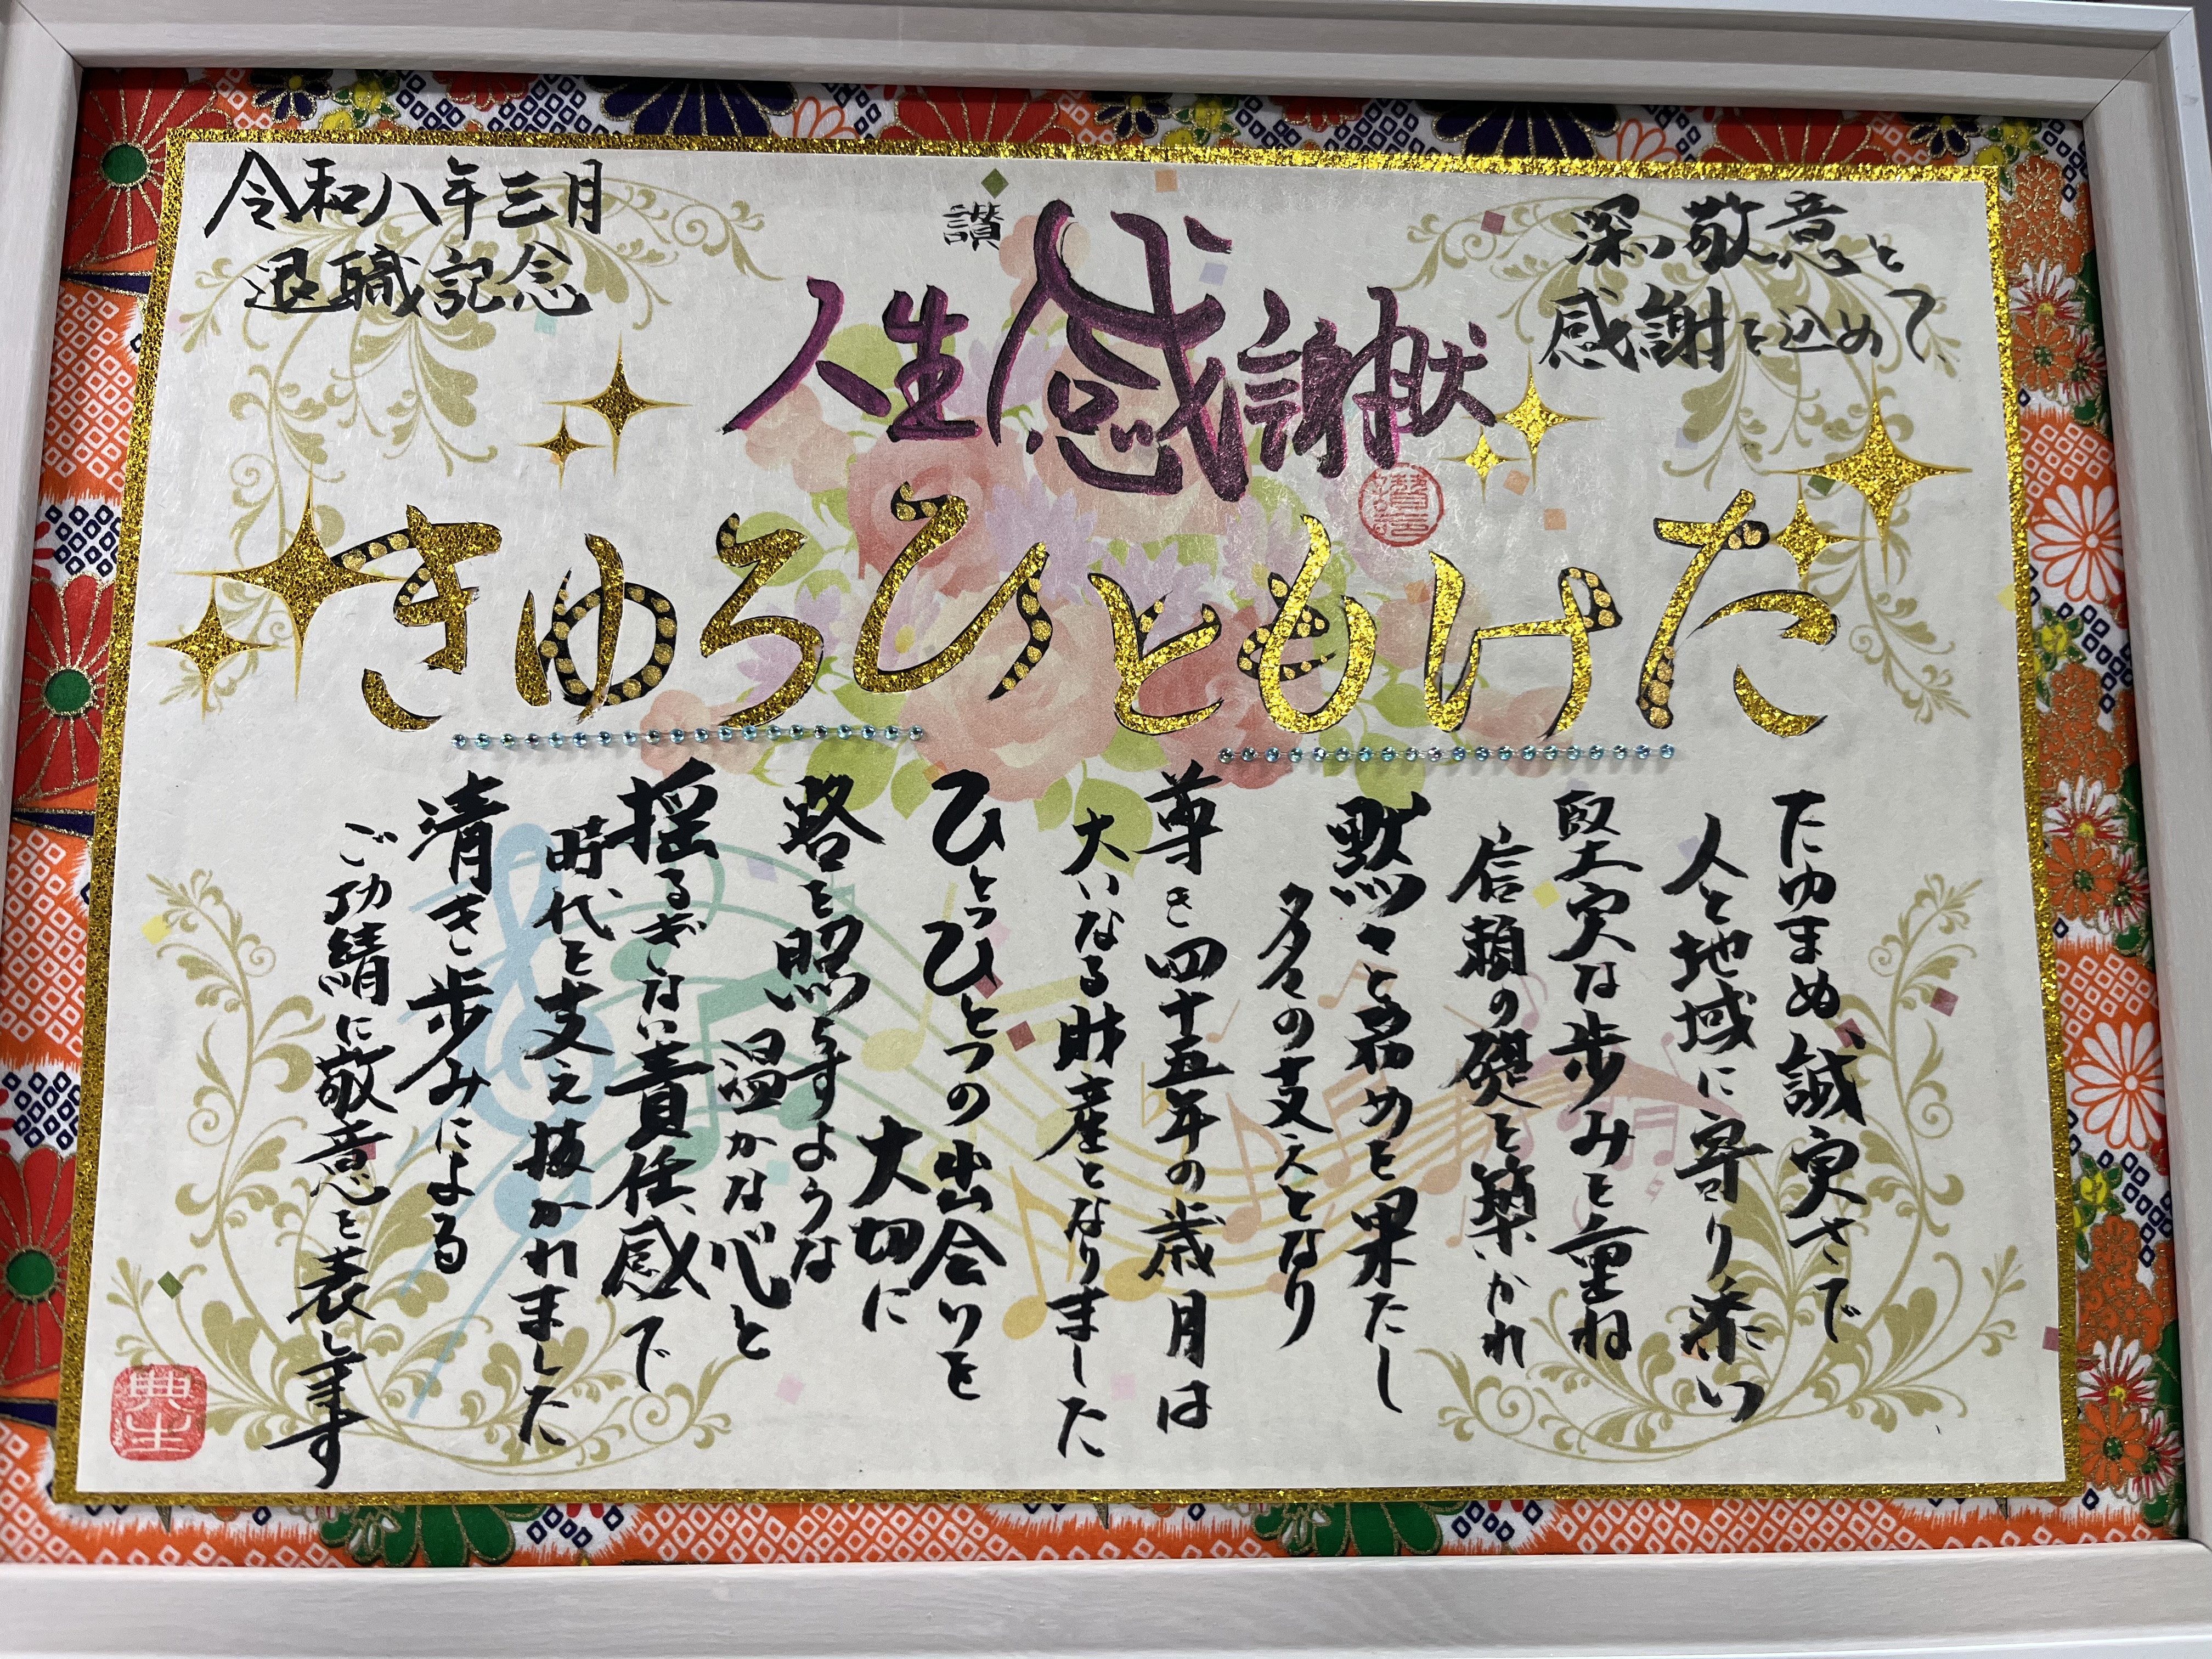 深い敬意と
感謝を込めて、
讃
人生感謝状
たけもとひろゆき
令和八年三月
退職記念
たゆまぬ誠実さで
人と地域に寄り添い
堅実な歩みを重ね
信頼の礎を築かれ
黙々と務めを果たし
多くの支えとなり
尊き四十五年の歳月は
大いなる財産となりました
ひとつひとつの出会いを
大切に
路を照らすような
温かな心と
揺るぎない責任感で
時代を支え抜かれました
清き歩みによる
ご功績に敬意を表します
典生